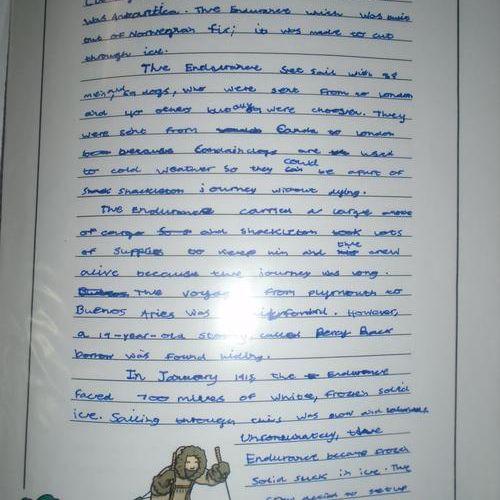 was Antarctica. The Endurance which was built
out of Norwegian fir; it was made to cut
through ice.
The Endurance set sail with 28
men, 69 dogs, who were sent from to London
and 40 other were choosen. They
were sent from Canda to London
because Canadain dogs are used
to cold weather so they could be apart of
Shackleton journey without dying.
The Endurance carried a large
of cargo and Shackleton took lots
of supplies to keep him and the crew
alive because the journey was long.
The voyage from plymouth to
Buenos Aries was. However,
a 19-year-old called Percy Black
borrow was found hiding.
In January 1915 the Endurance
faced 700 miles of white, frozen solid
ice. Sailing through this was slow and
Unforunately, the
Endurance became frozen
solid stuck in ice. The
decid to setup